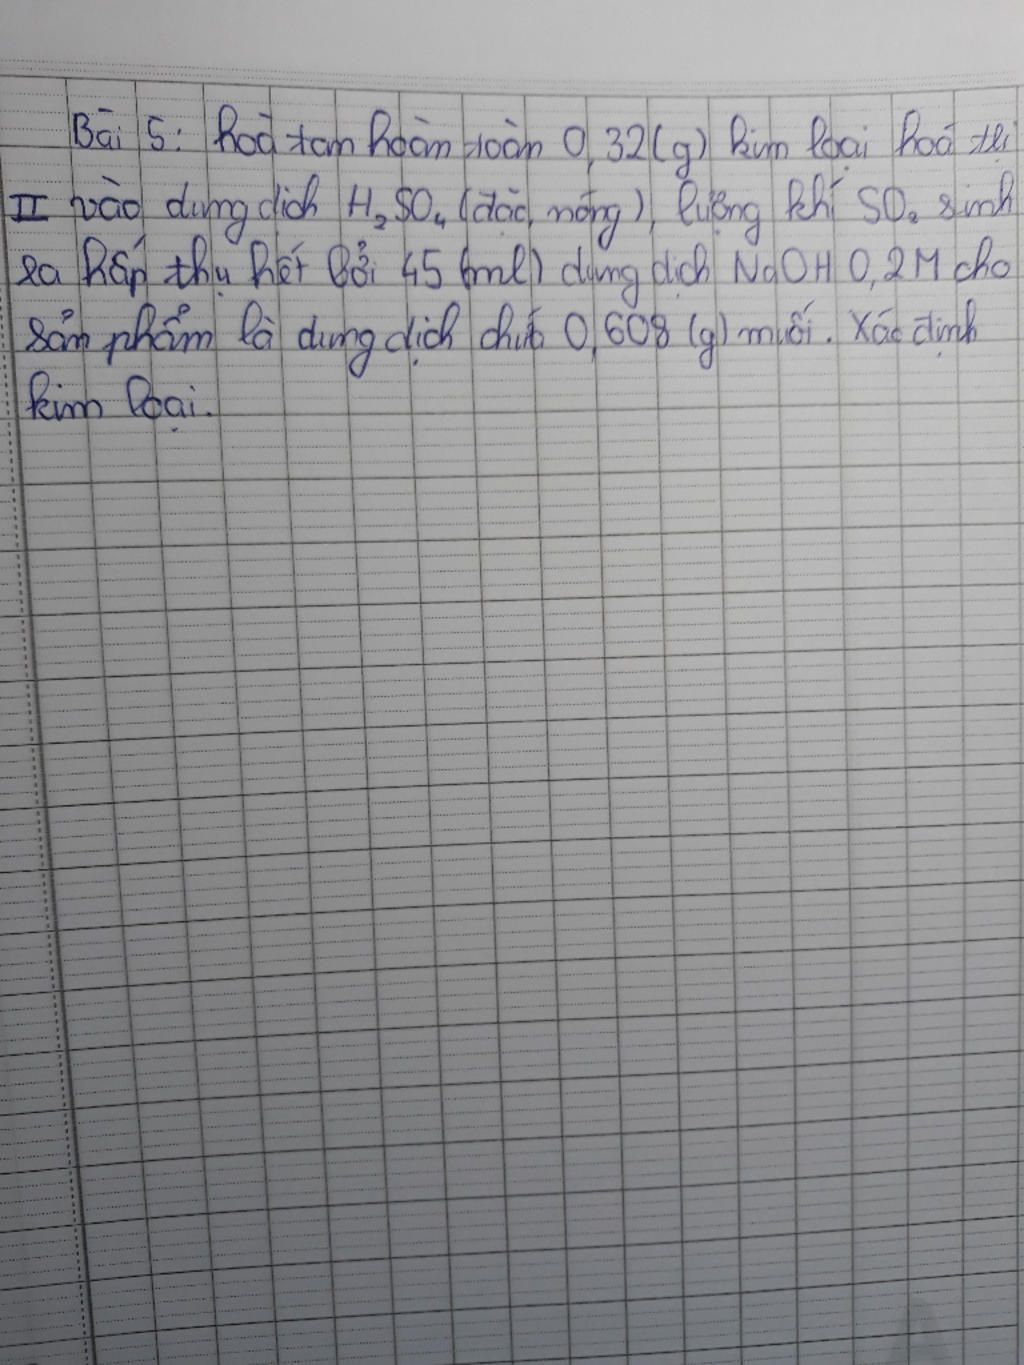 Bài 5: hoà tan hoàn toàn 0,32(g) kim loại hoá trị
II vào dung dịch H₂SO₄ (đặc, nóng), lượng khí SO₂ sinh
ra hấp thụ hết bởi 45 (ml) dung dịch NaOH 0,2M cho
sản phẩm là dung dịch chứa 0,608 (g) muối. Xác định
kim loại.